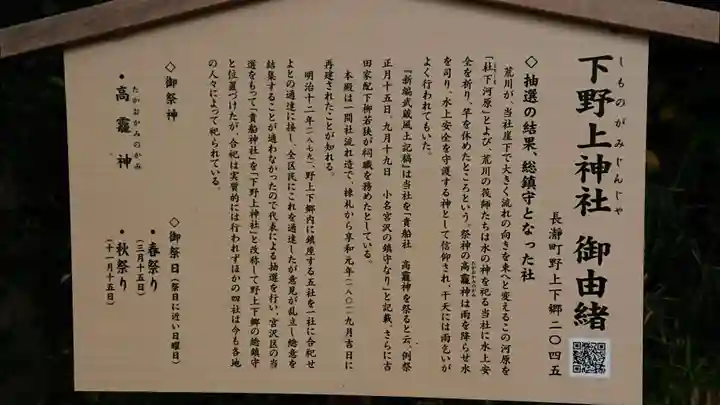 しものがみじんじゃ
下野上神社 御由緒
長瀞町野上下郷二〇四五
◇抽選の結果、総鎮守となった社
荒川が、当社崖下で大きく流れの向きを東へと変えるこの河原を
「社下河原」とよび、荒川の筏師たちは水の神を祀る当社に水上安
全を祈り、竿を休めたところという。祭神の高龗神は雨を降らせ水
を司り、水上安全を守護する神として信仰され、干天には雨乞いが
よく行われてもいた。
『新編武蔵風土記稿』は当社を「貴船社 高龗神を祭ると云、例祭
正月十五日、九月十九日 小名宮沢の鎮守なり」と記載、さらに古
田家配下柳若狭が祠職を務めたとしている。
本殿は一間社流れ造で、棟札から享和元年(一八〇一)九月吉日に
再建されたことが知れる。
明治十二年(一八七九)、野上下郷内に鎮座する五社を一社に合祀せ
よとの通達に接し、全区民にこれを通達したが意見が乱立し総意を
結集することが適わなかったので代表による抽選を行い、宮沢区の当
選をもって「貴船神社」を「下野上神社」と改称して野上下郷の総鎮守
と位置づけたが、合祀は実質的には行われずほかの四社は今も各地
の人々によって祀られている。
◇御祭神
たかおかみのかみ
・高龗神
◇御祭日(祭日に近い日曜日)
・春祭り
(三月十五日)
・秋祭り
(十一月十五日)